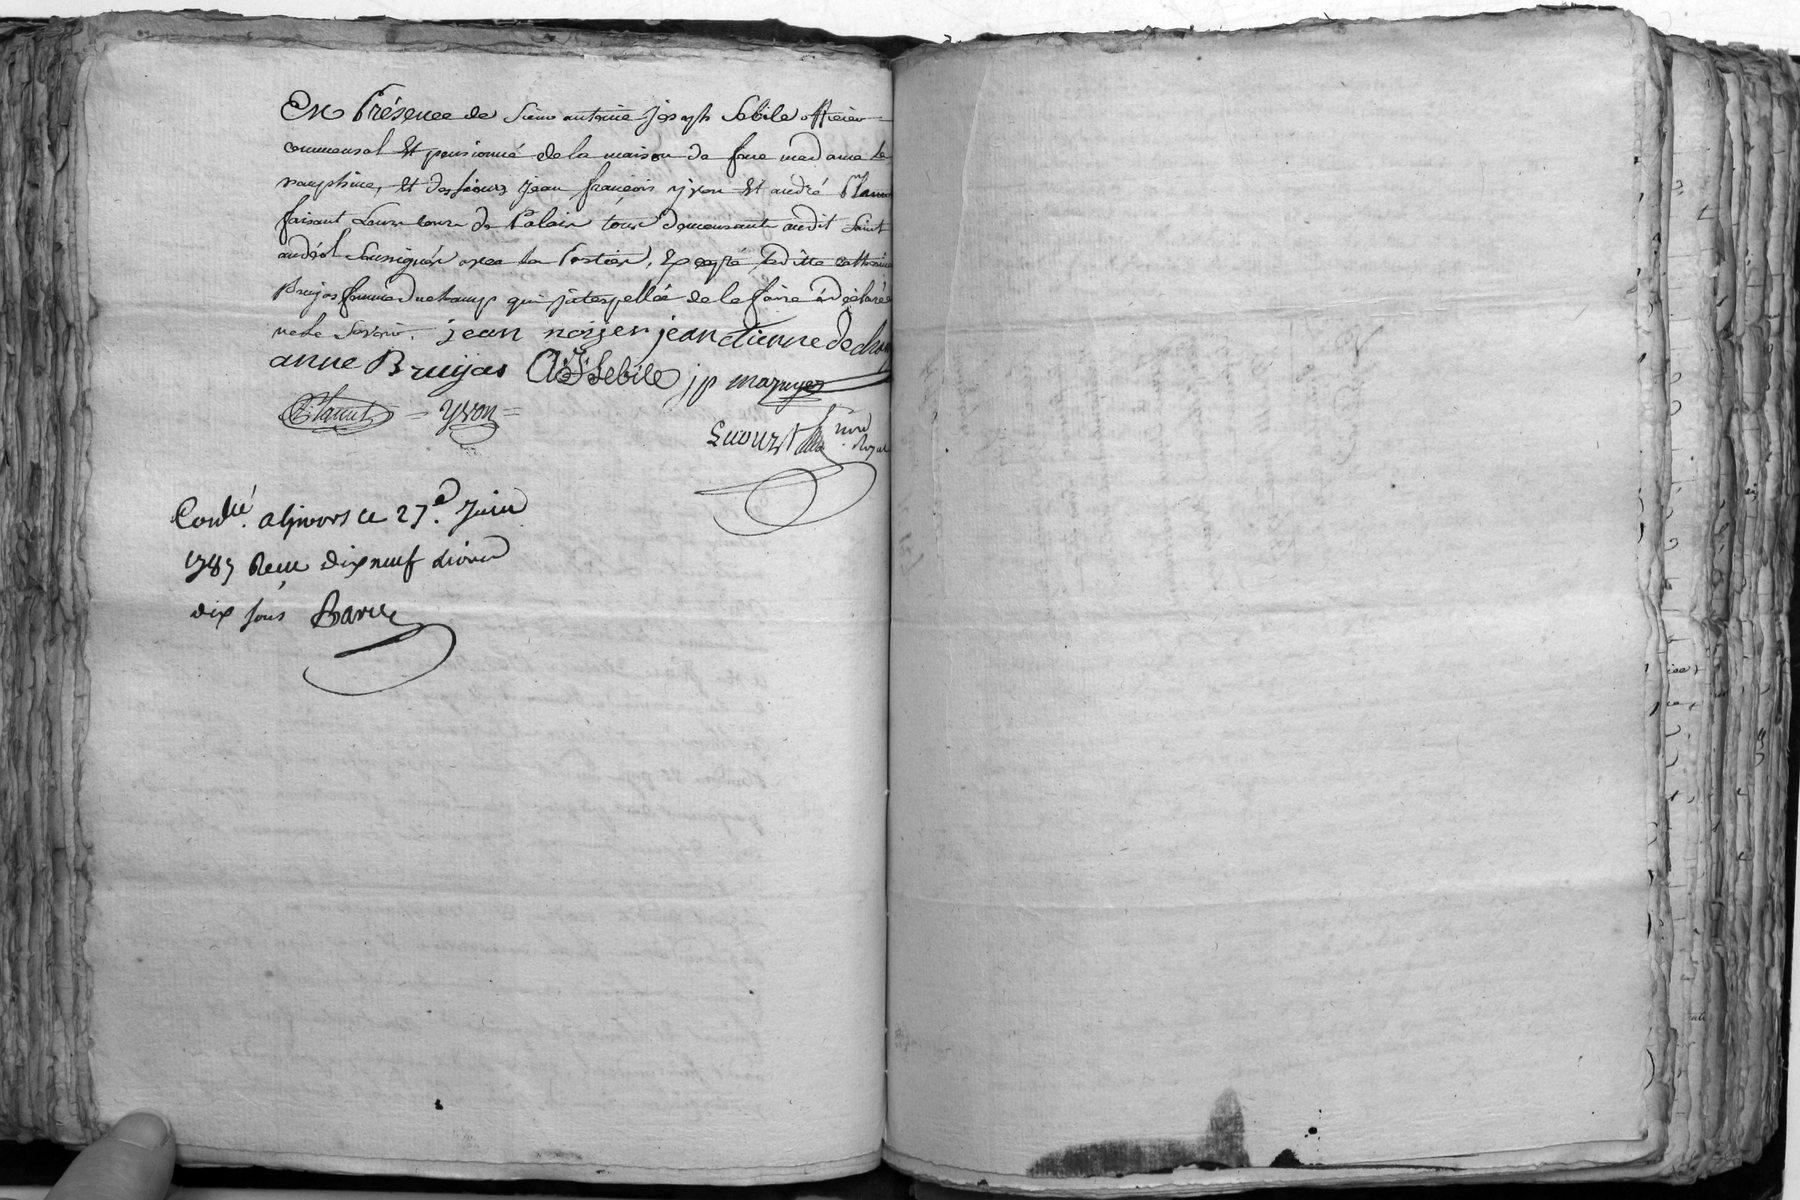 En Présence de Sieur antoine joseph Sebile officier
commensal Et pensionné de la maison de feue madame la
Dauphine, Et des sieurs jean françois yvon Et andré Planut
faisant Leurs cours de Palais tous demeurants audit Saint
andéol Soussignés avec les Parties, Excepté laditte catherine
Brujas femme Duchamp qui interpellée de le faire à déclaré
ne le Savoir. jean noijer jean etienne dechap
anne Bruijas AJ Sebile jp mazuyer
Planut = yvon =
no.re Royal
Con.llé a le 27.e Juin
1787 Recu dix neuf Livres
dix sous Barue